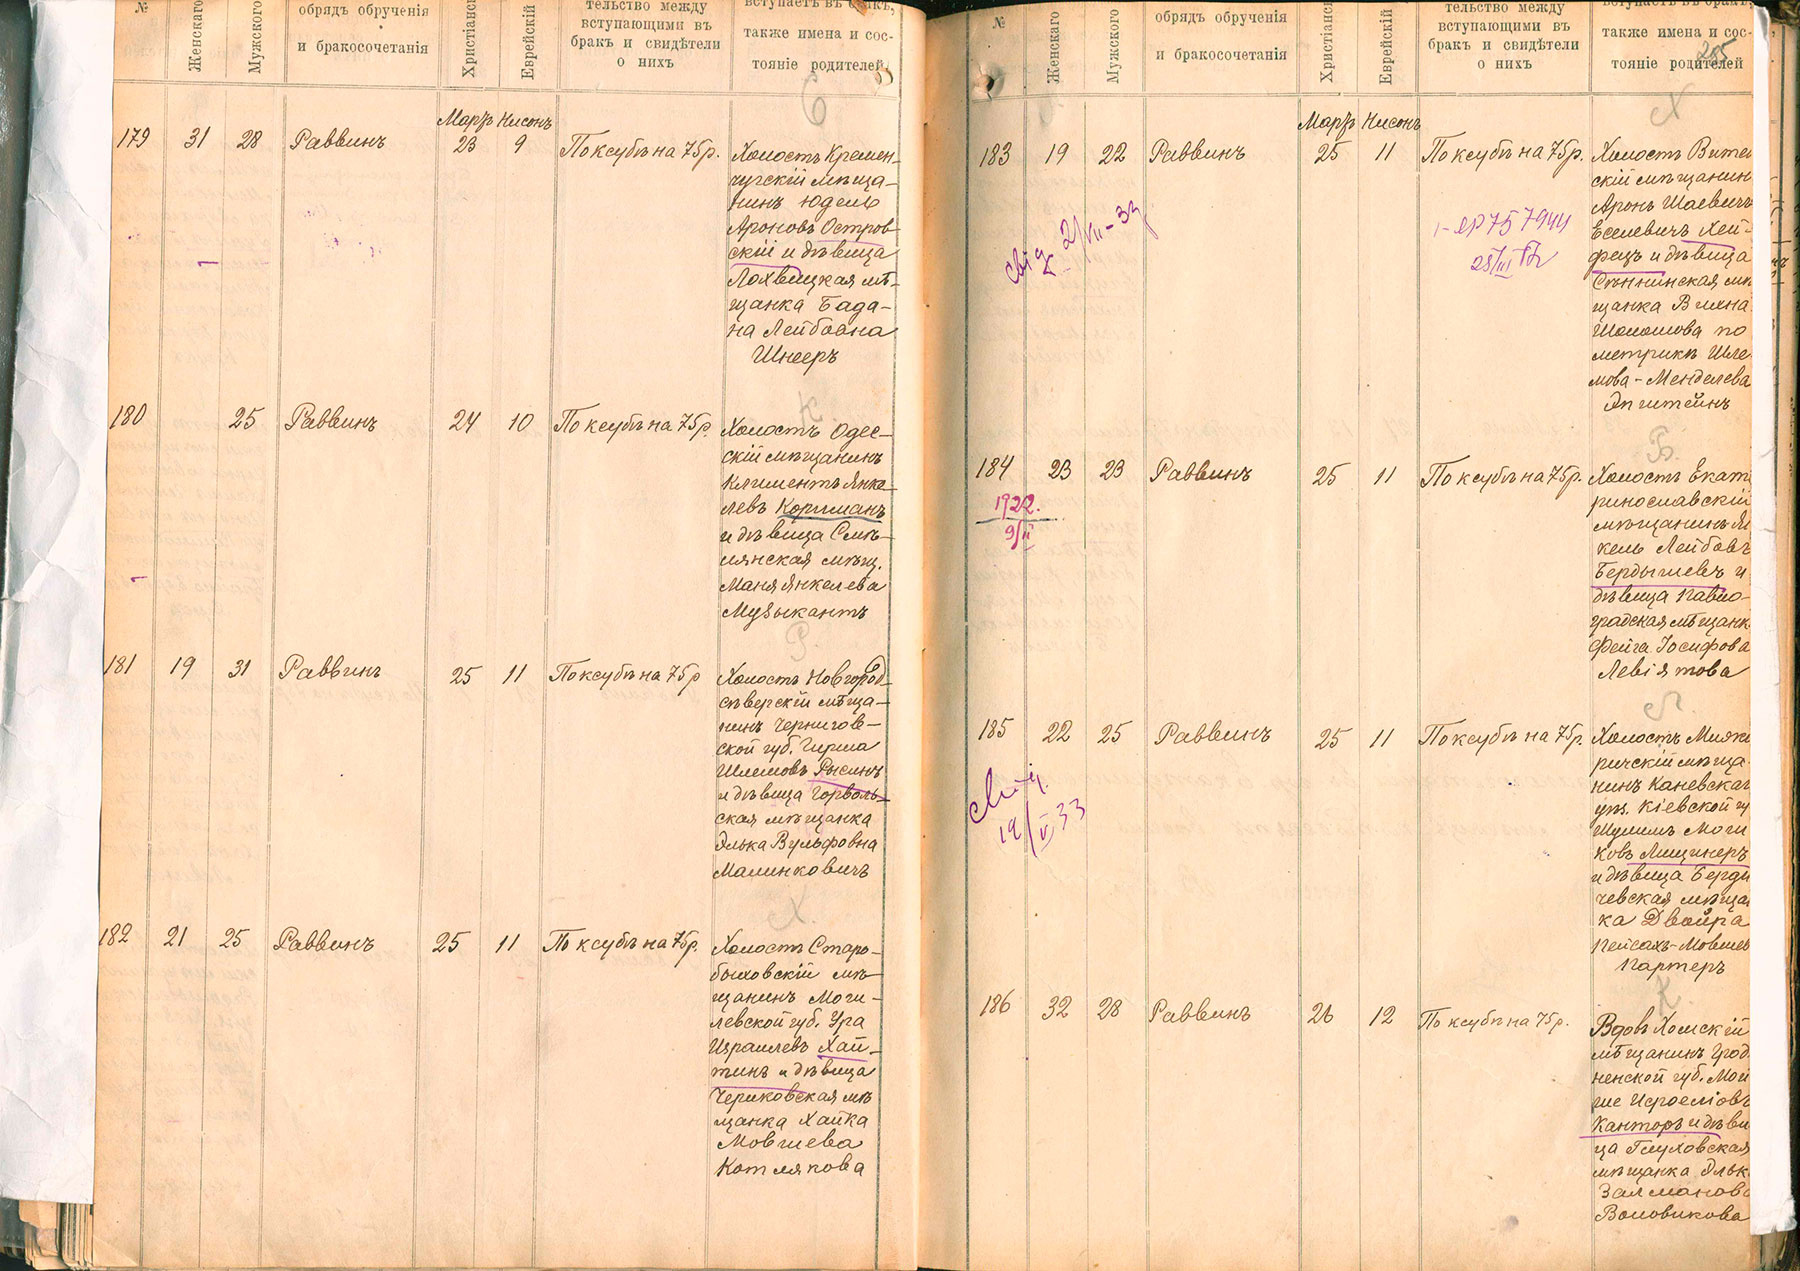 №
Женскаго
Мужского
обрядъ обрученія
и бракосочетанія
Христіанс
Еврейскій
тельство между
вступающими въ
бракъ и свидѣтели
о нихъ
вступаетъ въ бракъ,
также имена и сос-
тояніе родителей
С
Мартъ Нисонъ
179 31 28 Раввинъ 23 9 По ксубѣ на 75 р.
Холостъ Кремен-
чугскій мѣща-
нинъ Юдель
Ароновъ Остров-
скій и дѣвица
Лохвицкая мѣ-
щанка Бада-
на Лейбовна
Шнееръ
К
180 25 Раввинъ 24 10 По ксубѣ на 75 р.
Холостъ Одес-
скій мѣщанинъ
Климентъ Янке-
левъ Коршманъ
и дѣвица Смѣ-
лянская мѣщ.
Маня Янкелева
Музыкантъ
Р.
181 19 31 Раввинъ 25 11 По ксубѣ на 75 р
Холостъ Новгород-
сѣверскій мѣща-
нинъ Чернигов-
ской губ. Гирша
Шлемовъ Рысинъ
и дѣвица Горволь-
ская мѣщанка
Элька Вульфовна
Малинковичъ
Х.
182 21 25 Раввинъ 25 11 По ксубѣ на 75 р.
Холостъ Старо-
быховскій мѣ-
щанинъ Моги-
левской губ. Ура
Израилевъ Хай-
тинъ и дѣвица
Чериковская мѣ
щанка Хайка
Мовшева
Котлякова
№
Женскаго
Мужского
обрядъ обрученія
и бракосочетанія
Христіанс
Еврейскій
тельство между
вступающими въ
бракъ и свидѣтели
о нихъ
вступаетъ въ бракъ,
также имена и сос-
тояніе родителей
205
Х
Мартъ Нисонъ
183 19 22 Раввинъ 25 11 По ксубѣ на 75 р.
Холостъ Вите
скій мѣщанин
Аронъ Шаевичъ
Еселевичъ Хей-
фецъ и дѣвица
Сѣннинская мѣ
щанка Вихна
Шоломова по
метрикѣ Шле
мова-Менделева
Эпштейнъ
2/VII-33
757944
Б.
184 23 23 Раввинъ 25 11 По ксубѣ на 75 р.
1922.
9/II
Холостъ Екате
ринославскій
мѣщанинъ Я
кель Лейбовъ
Бердычевъ и
дѣвица Павло-
градская мѣщанк
Фейга Іосифова
Левіятова
Л.
185 22 25 Раввинъ 25 11 По ксубѣ на 75 р.
19/V 33
Холостъ Мияко
ричскій мѣща
нинъ Каневска
уѣз. Кіевской гу
Шулимъ Моги
ковъ Лищинеръ
и дѣвица Берди
чевская мѣща
ка Двойра
Пейсахъ-Мовшев
Партеръ
К.
186 32 28 Раввинъ 26 12 По ксубѣ на 75 р.
Вдовъ Хомскій
мѣщанинъ Грод
ненской губ. Мой
ше Исроеліовъ
Канторъ и дѣви
ца Глуховская
мѣщанка Эльк
Залманова
Воловикова